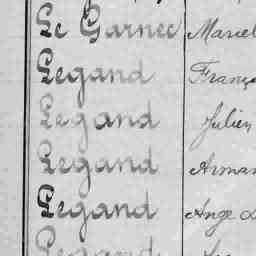 Le Garnec Marcel
Legand França
Legand Julien
Legand Arman
Legand Ange
Legand